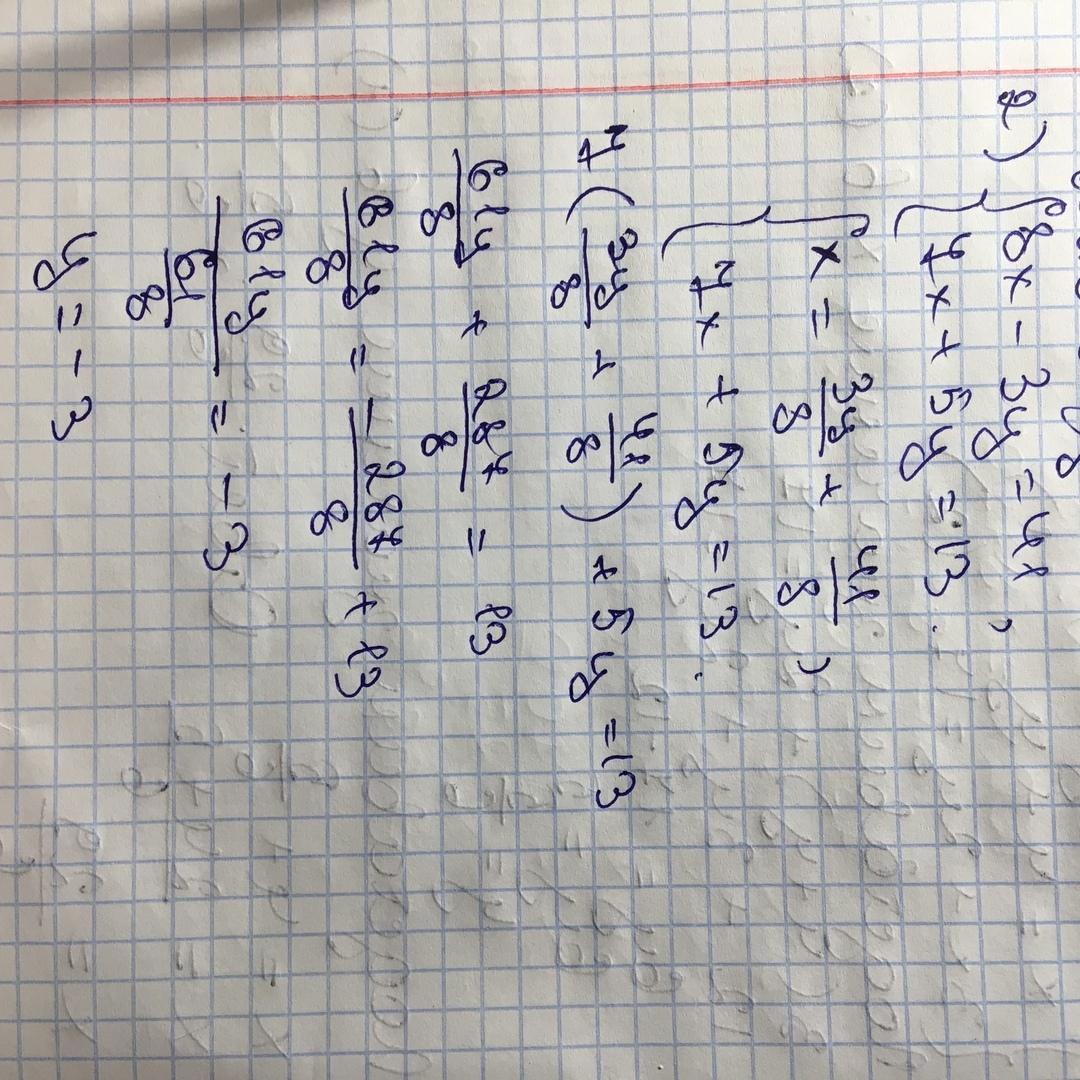 2) { 8x - 3y = 41,
7x + 5y = 13.
{ x = 3y/8 + 41/8,
7x + 5y = 13.
7(3y/8 + 41/8) + 5y = 13
61y/8 + 287/8 = 13
61y/8 = -287/8 + 13
61y/(61/8) = -3
y = -3